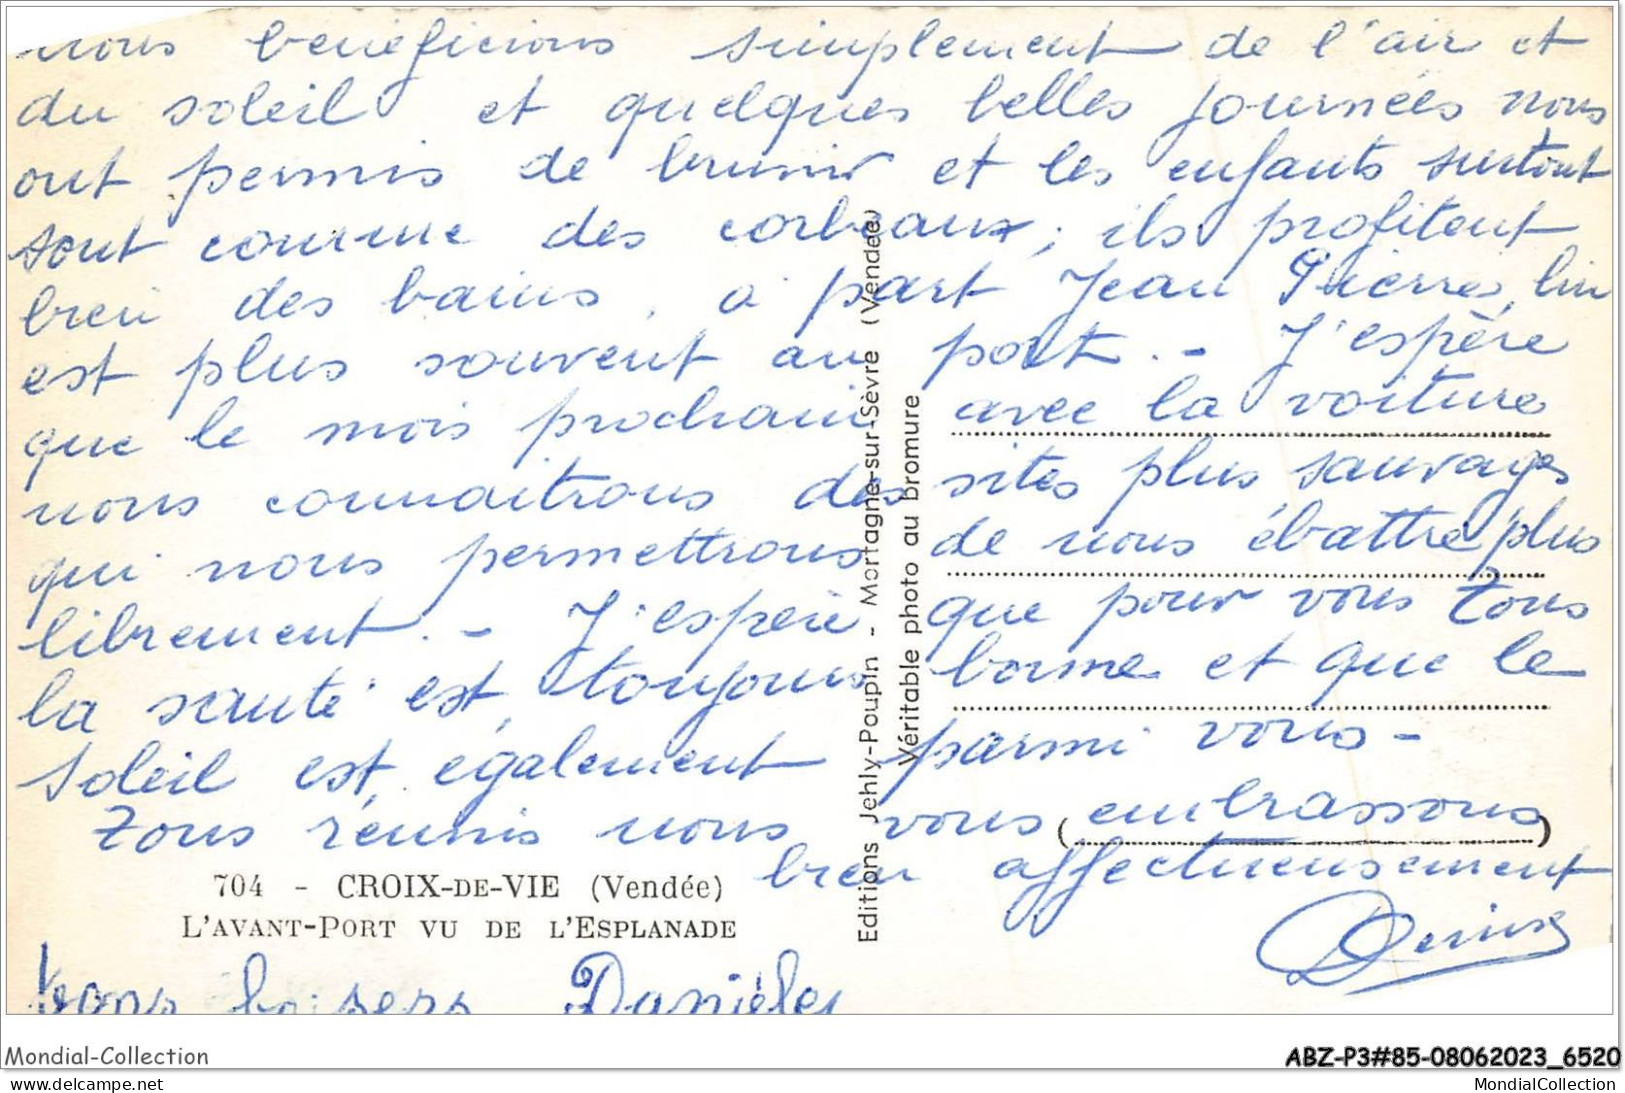 nous bénéficions simplement de l'air et
du soleil et quelques belles journées nous
ont permis de brunir et les enfants surtout
sont comme des corbeaux; ils profitent
bien des bains, à part Jean Pierre, lui
est plus souvent au port. - J'espère
que le mois prochain avec la voiture
nous connaitrons des sites plus sauvages
qui nous permettrons de nous ébattre plus
librement. - J'espère que pour vous tous
la santé est toujours bonne et que le
soleil est également parmi vous -
Tous réunis nous vous embrassons
bien affectueusement
Denise
704 - CROIX-DE-VIE (Vendée)
L'AVANT-PORT VU DE L'ESPLANADE
bons baisers Danièle
Editions Jehly-Poupin - Mortagne-sur-Sèvre (Vendée)
Véritable photo au bromure
Mondial-Collection
ABZ-P3#85-08062023_6520
delcampe.net
MondialCollection